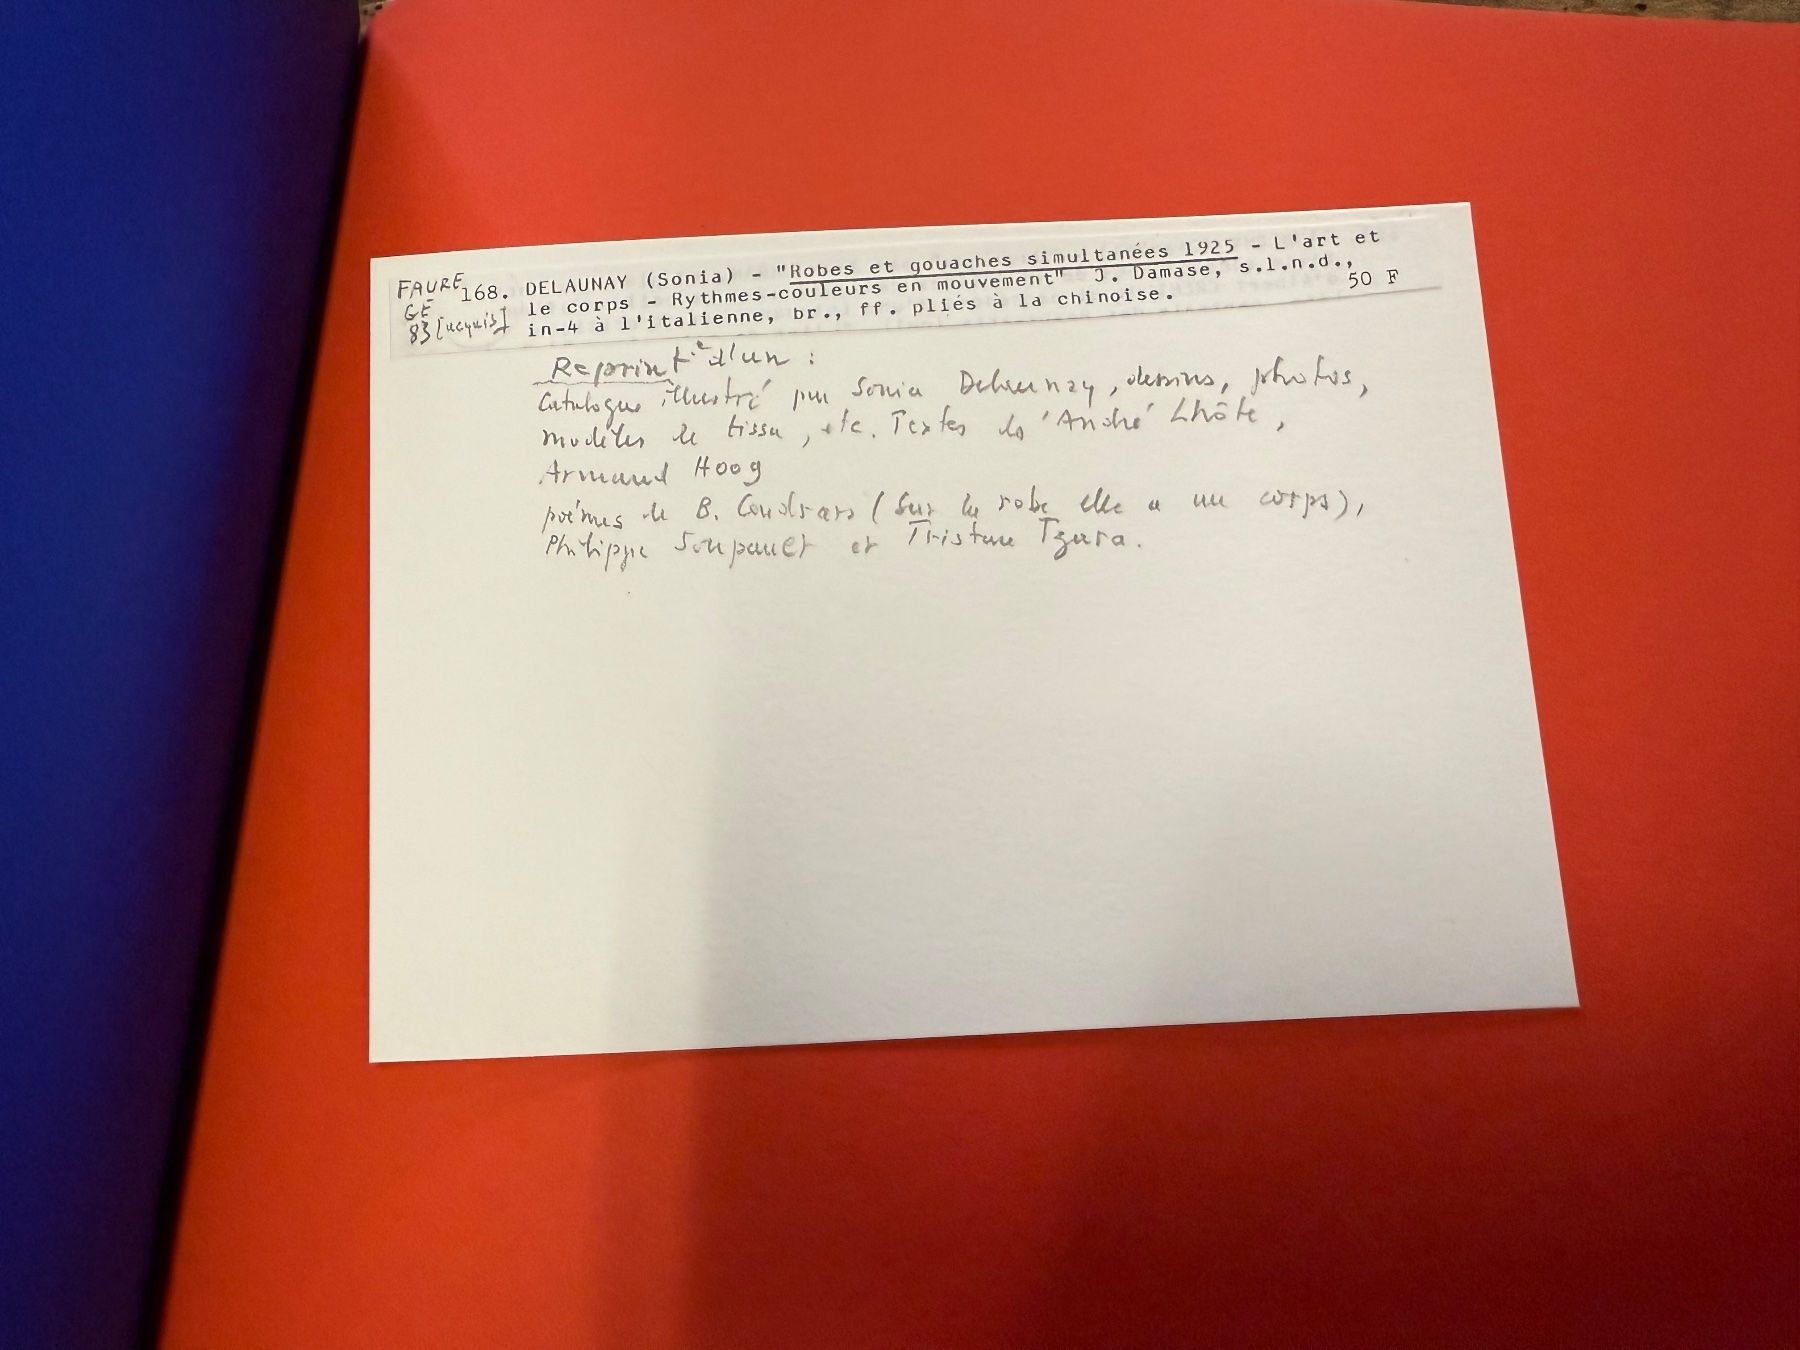 FAURE
GE
83 [acquis]
168. DELAUNAY (Sonia) - "Robes et gouaches simultanées 1925 - L'art et
le corps - Rythmes-couleurs en mouvement" J. Damase, s.l.n.d.,
in-4 à l'italienne, br., ff. pliés à la chinoise. 50 F
Reprint d'un :
Catalogue illustré par Sonia Delaunay, dessins, photos,
modèles de tissu, etc. Textes de André Lhôte,
Armand Hoog
poèmes de B. Cendrars (Sur la robe elle a un corps),
Philippe Soupault et Tristan Tzara.